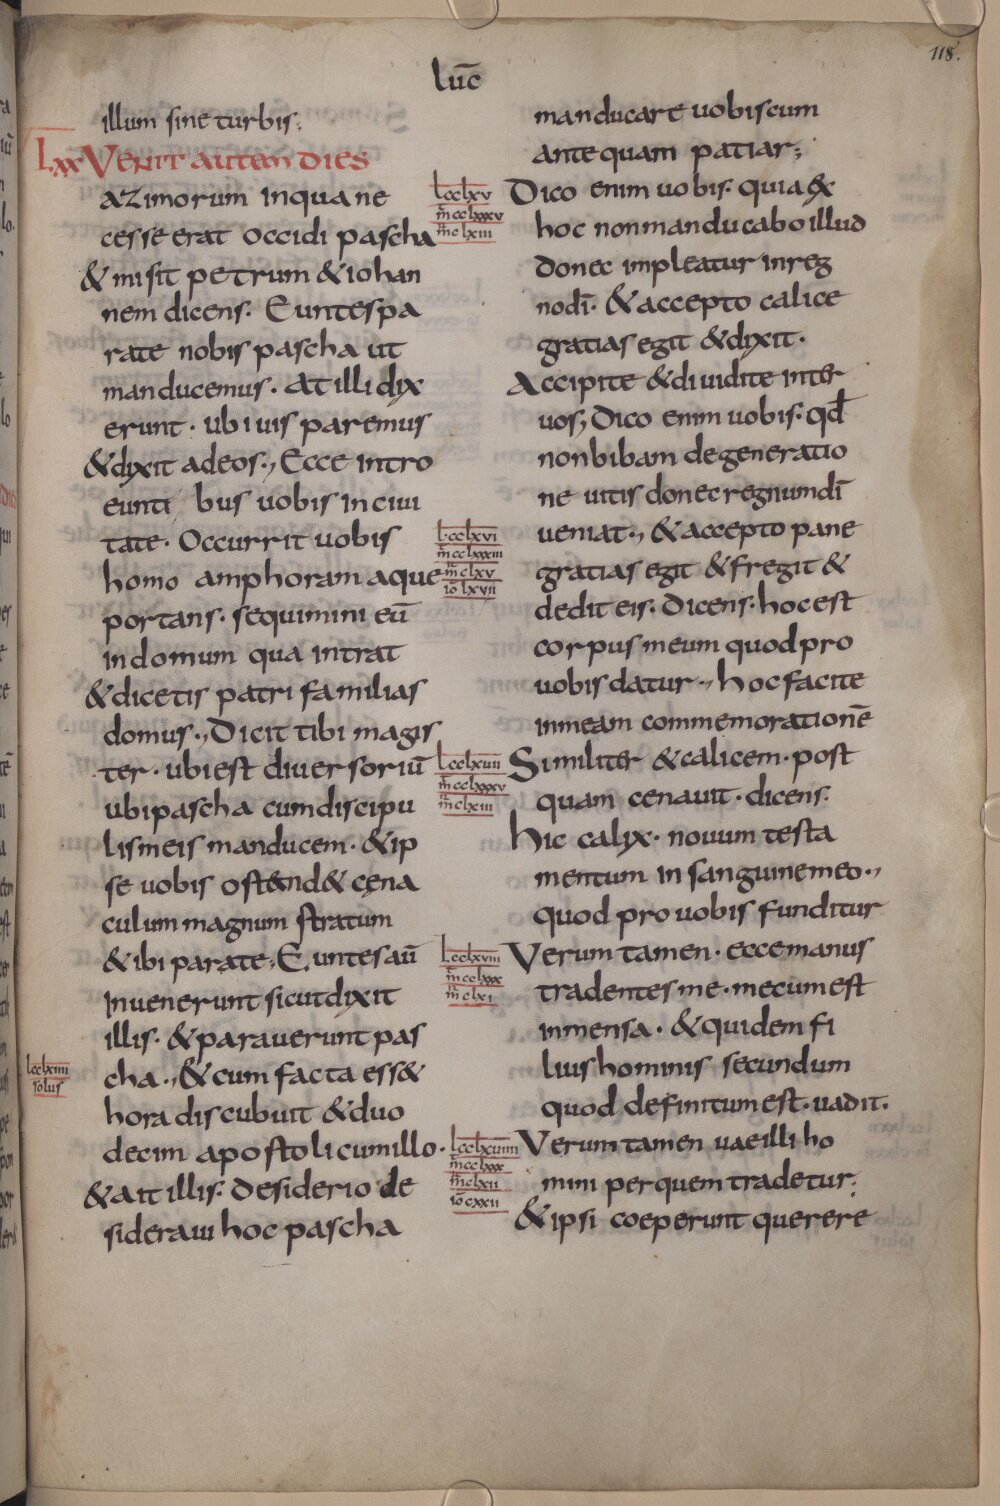 118.
luc̄
illum sine turbis;
Lxx VENIT autem DIES
azimorum inqua ne
cesse erat occidi pascha
& misit petrum & iohan
nem dicens· Euntes pa
rate nobis pascha ut
manducemus· at illi dix
erunt· ubi uis paremus
& dixit ad eos·, Ecce intro
eunti bus uobis in ciui
tate· Occurrit uobis
homo amphoram aque
portans· sequimini eū
in domum qua intrat
& dicetis patri familias
domus·, Dicit tibi magis
ter· ubi est diuersoriū
ubi pascha cum discipu
lis meis manducem· & ip
se uobis ostend& cęna
culum magnum stratum
& ibi parate; Euntes aū
inuenerunt sicut dixit
illis· & parauerunt pas
cha·, & cum facta ess&
lcclxiiii
solus
hora discubuit & duo
decim apostoli cum illo·
& ait illis: desiderio de
sideraui hoc pascha
manducare uobiscum
ante quam patiar;
lcclxv
m̄cclxxxv
m̄clxiii
Dico enim uobis· quia ex
hoc non manducabo illud
donec impleatur in reg
no dī· & accepto calice
gratias egit & dixit·
Accipite & diuidite inter
uos; Dico enim uobis· qd̄
non bibam de generatio
ne uitis donec regnum dī
lcclxvi
m̄cclxxxiii
m̄clxv
iō lxvii
ueniat·, & accepto pane
gratias egit & fregit &
dedit eis· dicens· hoc est
corpus meum quod pro
uobis datur·, hoc facite
in meam commemorationē
lcclxvii
m̄cclxxxv
m̄clxiii
Similiter & calicem· post
quam cenauit· dicens·
hic calyx· nouum testa
mentum in sanguine meo·,
quod pro uobis funditur
lcclxviii
m̄cclxxx
m̄clxi
Verum tamen· ecce manus
tradentes me· mecum est
in mensa· & quidem fi
lius hominis secundum
quod definitum est· uadit·
lcclxviiii
m̄cclxxx
m̄clxii
iō cxxii
Verum tamen uae illi ho
mini per quem tradetur;
& ipsi coeperunt querere